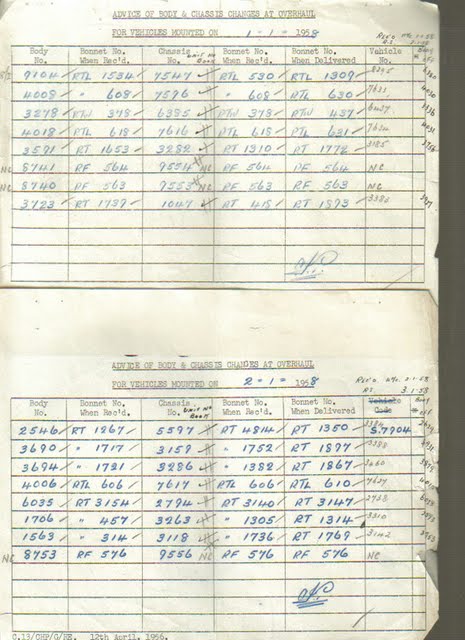 ADVICE OF BODY & CHASSIS CHANGES AT OVERHAUL
FOR VEHICLES MOUNTED ON 1-1- 1958
Body No. Bonnet No. When Rec'd. Chassis No. Unit No Book Bonnet No. When Overhauled Bonnet No. When Delivered Vehicle No.
9104 RTL 1534 7547 RTL 530 RTL 1309 8295
4008 " 608 7596 " 608 RTL 630 7631
3278 RTW 378 6385 RTW 378 RTW 437 6437
4018 RTL 618 7616 RTL 618 RTL 631 7624
3591 RT 1653 3282 RT 1310 RT 1772 3185
NC 8741 RF 564 9554 NC RF 564 RF 564 NC
NC 8740 RF 563 9553 NC RF 563 RF 563 NC
3723 RT 1739 1047 RT 418 RT 1893 3386
ADVICE OF BODY & CHASSIS CHANGES AT OVERHAUL
FOR VEHICLES MOUNTED ON 2-1- 1958
3.1.58
Body No. Bonnet No. When Rec'd. Chassis No. Unit No Book Bonnet No. When Overhauled Bonnet No. When Delivered Vehicle Code
2546 RT 1267 5597 RT 4814 RT 1350 S.7904
3690 " 1717 3159 " 1752 RT 1897 3388
3694 " 1721 3286 " 1382 RT 1867 3460
4006 RTL 606 7617 RTL 606 RTL 610 7637
6035 RT 3154 2794 RT 3140 RT 3147 2738
1706 " 457 3263 " 1305 RT 1314 3310
1563 " 314 3118 " 1736 RT 1769 3142
NC 8753 RF 576 9556 NC RF 576 RF 576 NC
C.13/CHP/G/HE. 12th April, 1956.